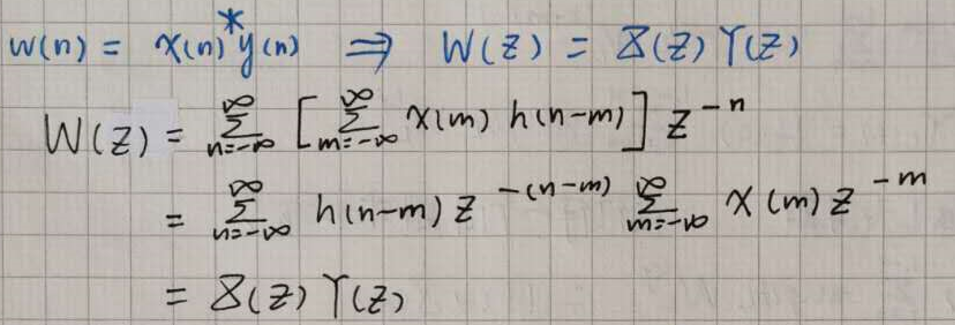 w(n) = x(n)*y(n) ⇒ W(z) = X(z) Y(z)
W(z) = ∑_{n=-∞}^{∞} [ ∑_{m=-∞}^{∞} x(m) h(n-m) ] z^{-n}
= ∑_{n=-∞}^{∞} h(n-m) z^{-(n-m)} ∑_{m=-∞}^{∞} x(m) z^{-m}
= X(z) Y(z)